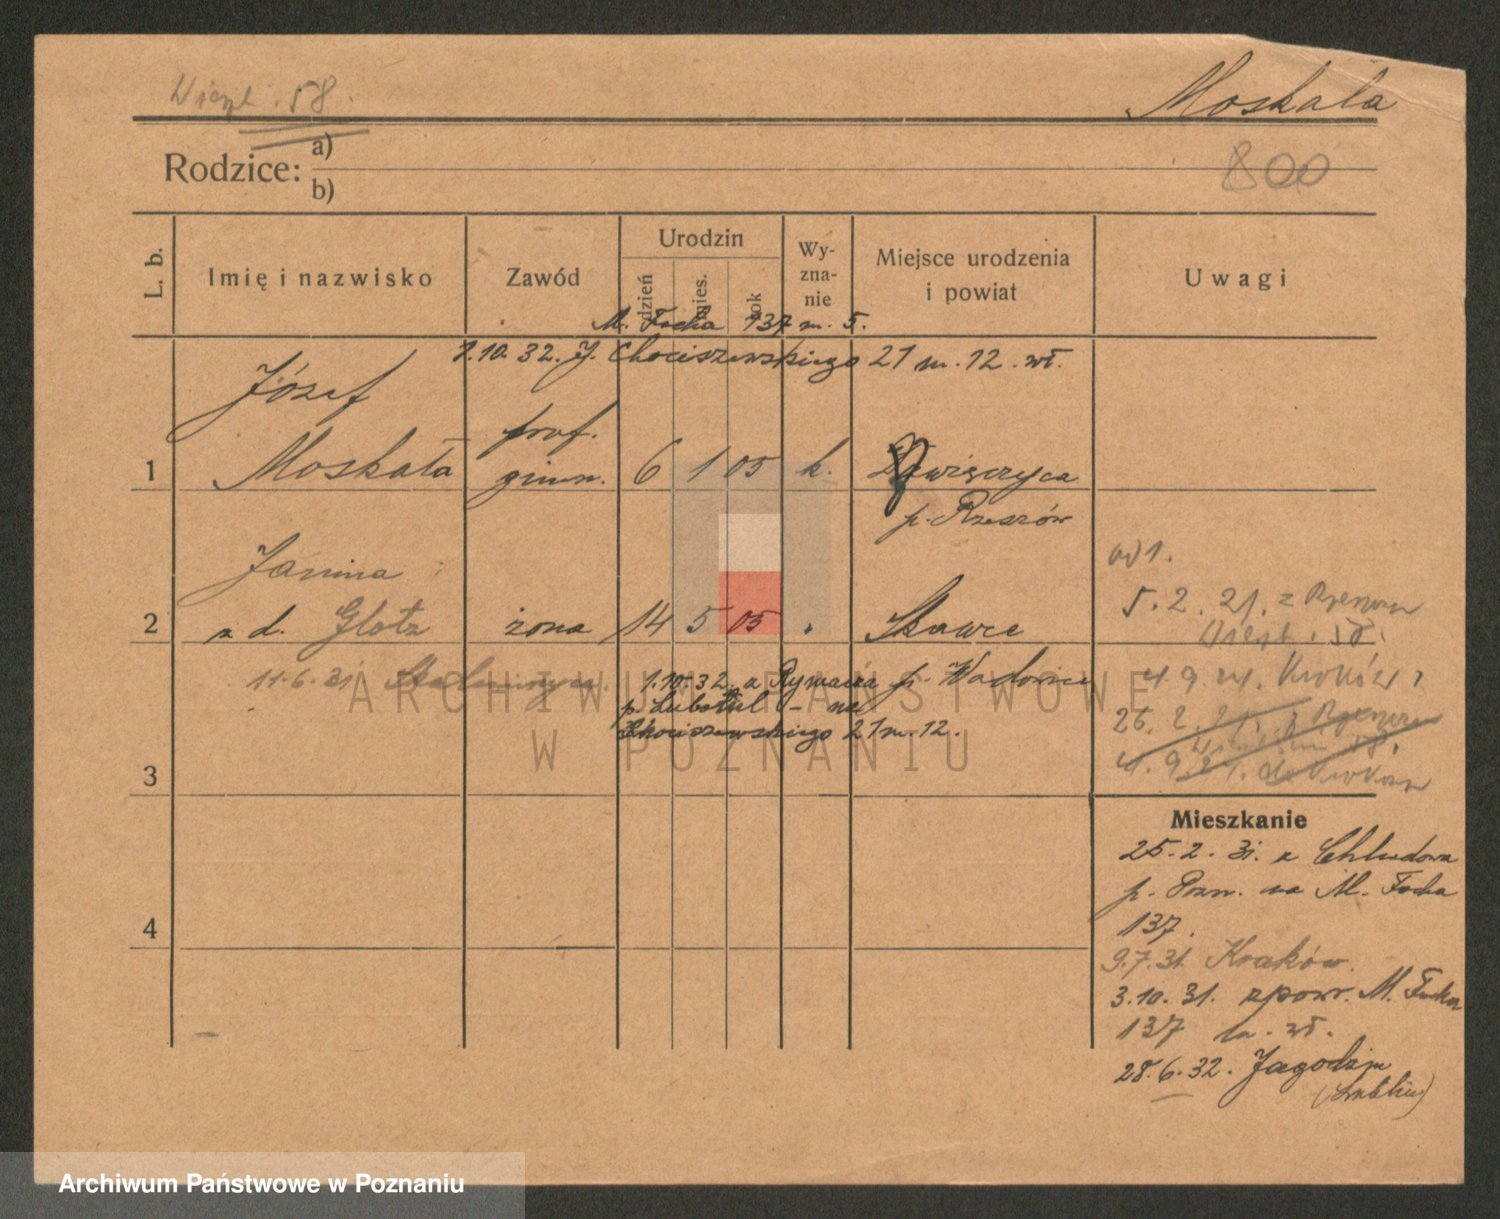 58.
Moskala
Rodzice: a)
b)
800
L. b.
Imię i nazwisko
Zawód
Urodzin
dzień
mies.
rok
Wy-
zna-
nie
Miejsce urodzenia
i powiat
Uwagi
M. Focha 137 m. 5.
1.10.32. J. Chociszewskiego 21 m. 12. wł.
1
Józef
Moskała
prof.
gimn.
6 1 05 k.
p. Rzeszów
2
Janina
z d. Glotz
żona
14 5 05 "
Skawce
p. Wadowice
11.6.31
1.10.32. z Rymacza
p. Luboml - na
Chociszewskiego 21 m. 12.
od 1.
5. 2. 21. z
58.
4. 9. 24. Kraków
26. 2.
58.
4. 9. 24. do Krakowa
3
4
Mieszkanie
25. 2. 31. z Chludowa
p. Pozn. na M. Focha
137.
9.7.31. Kraków.
3.10.31. zpowr. M. Focha
137 wł.
28. 6. 32. Jagodzin
(Lublin)
ARCHIWUM PAŃSTWOWE
W POZNANIU
Archiwum Państwowe w Poznaniu